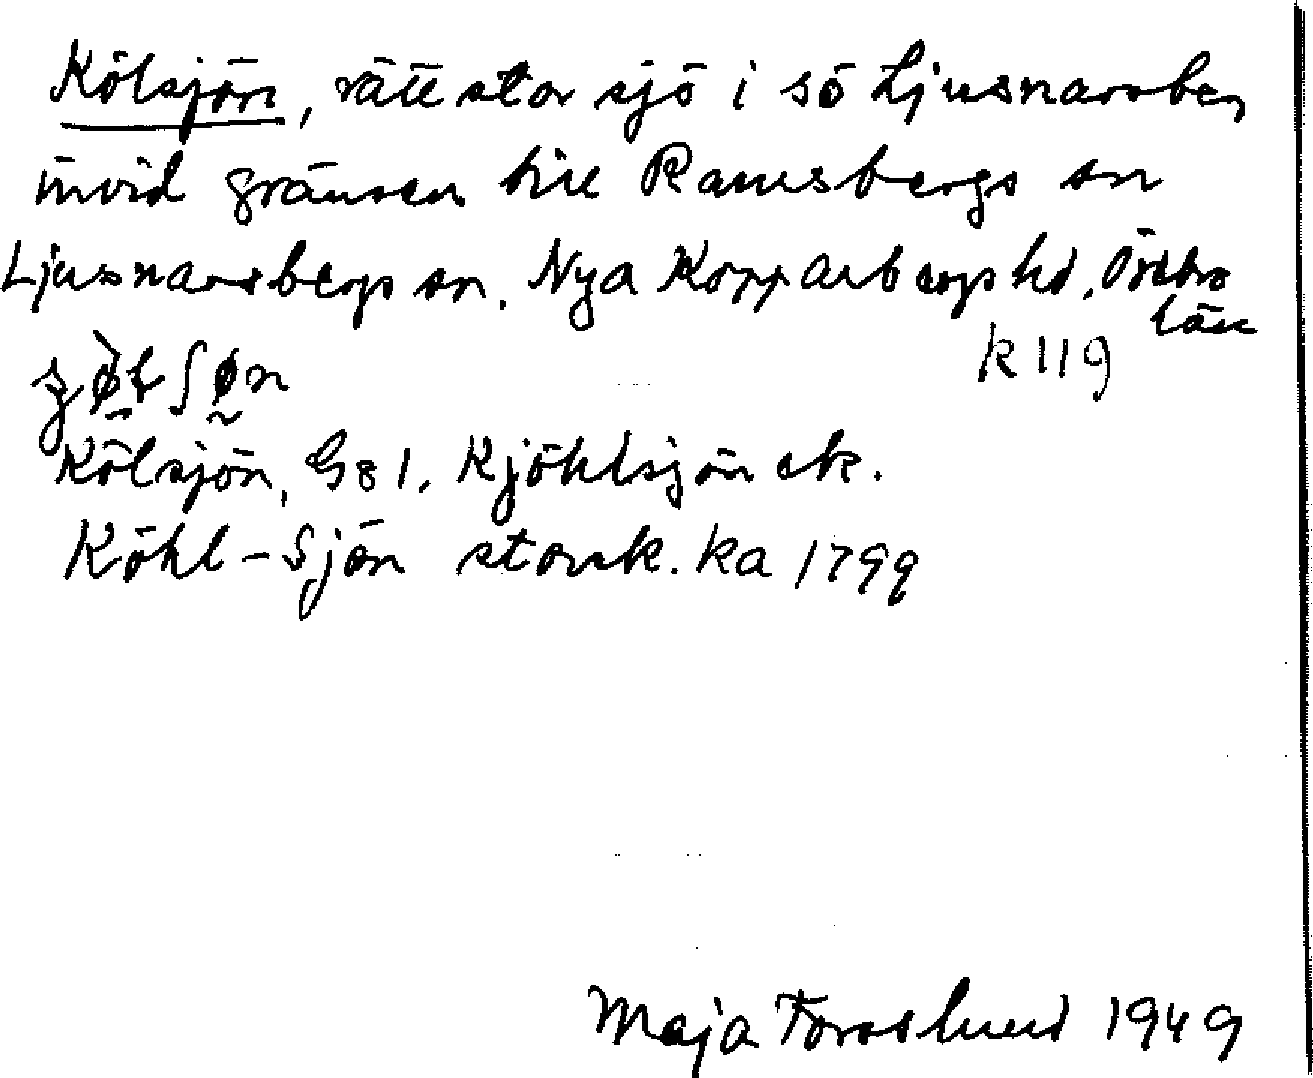 Kölsjön, rätt stor sjö i sö Ljusnarsberg
invid gränsen till Ramsbergs sn
Ljusnarsbergs sn. Nya Kopparbergs hd. Örebro
län
k 119
Kölsjön, G81. Kjöhlsjön ek.
Köhl-Sjön storsk. ka 1799
Maja Forsslund 1949